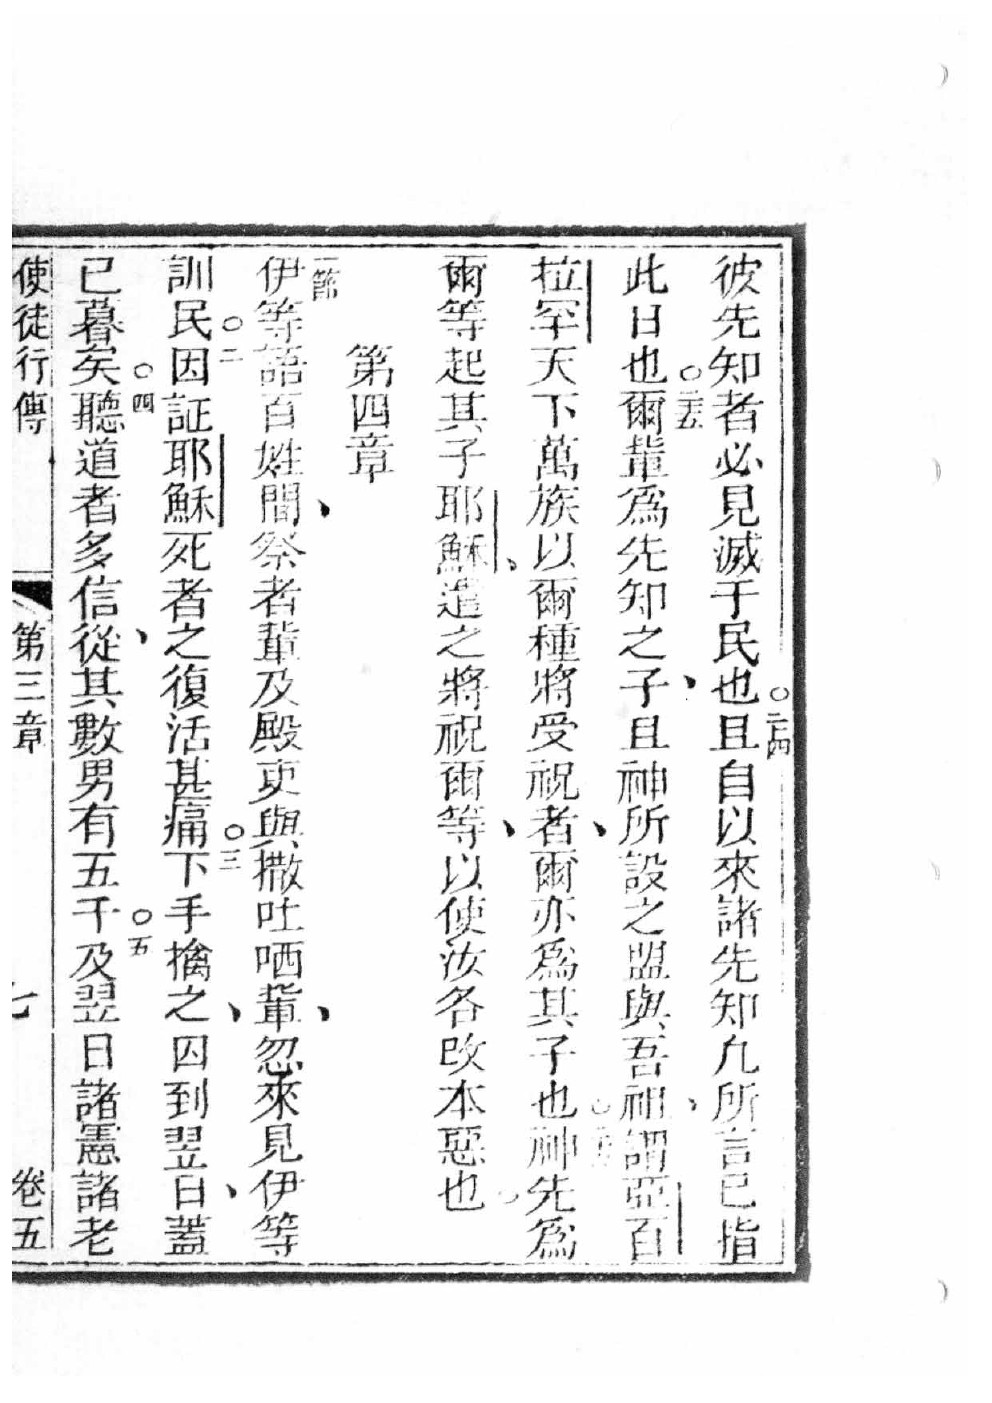 彼先知者必見滅于民也○二四且自以來諸先知凡所言已指
此日也○二五爾輩為先知之子、且神所設之盟與吾祖、謂亞百
拉罕天下萬族以爾種將受祝者、爾亦為其子也○神先為
爾等起其子耶穌、遣之將祝爾等、以使汝各改本惡也
第四章
一節伊等語百姓間、祭者輩及殿吏與撒吐哂輩、忽來見伊等
○二訓民因証耶穌死者之復活甚痛○三下手擒之、囚到翌日、蓋
已暮矣○四聽道者多信從、其數男有五千○五及翌日諸憲諸老
使徒行傳 第三章 七 卷五